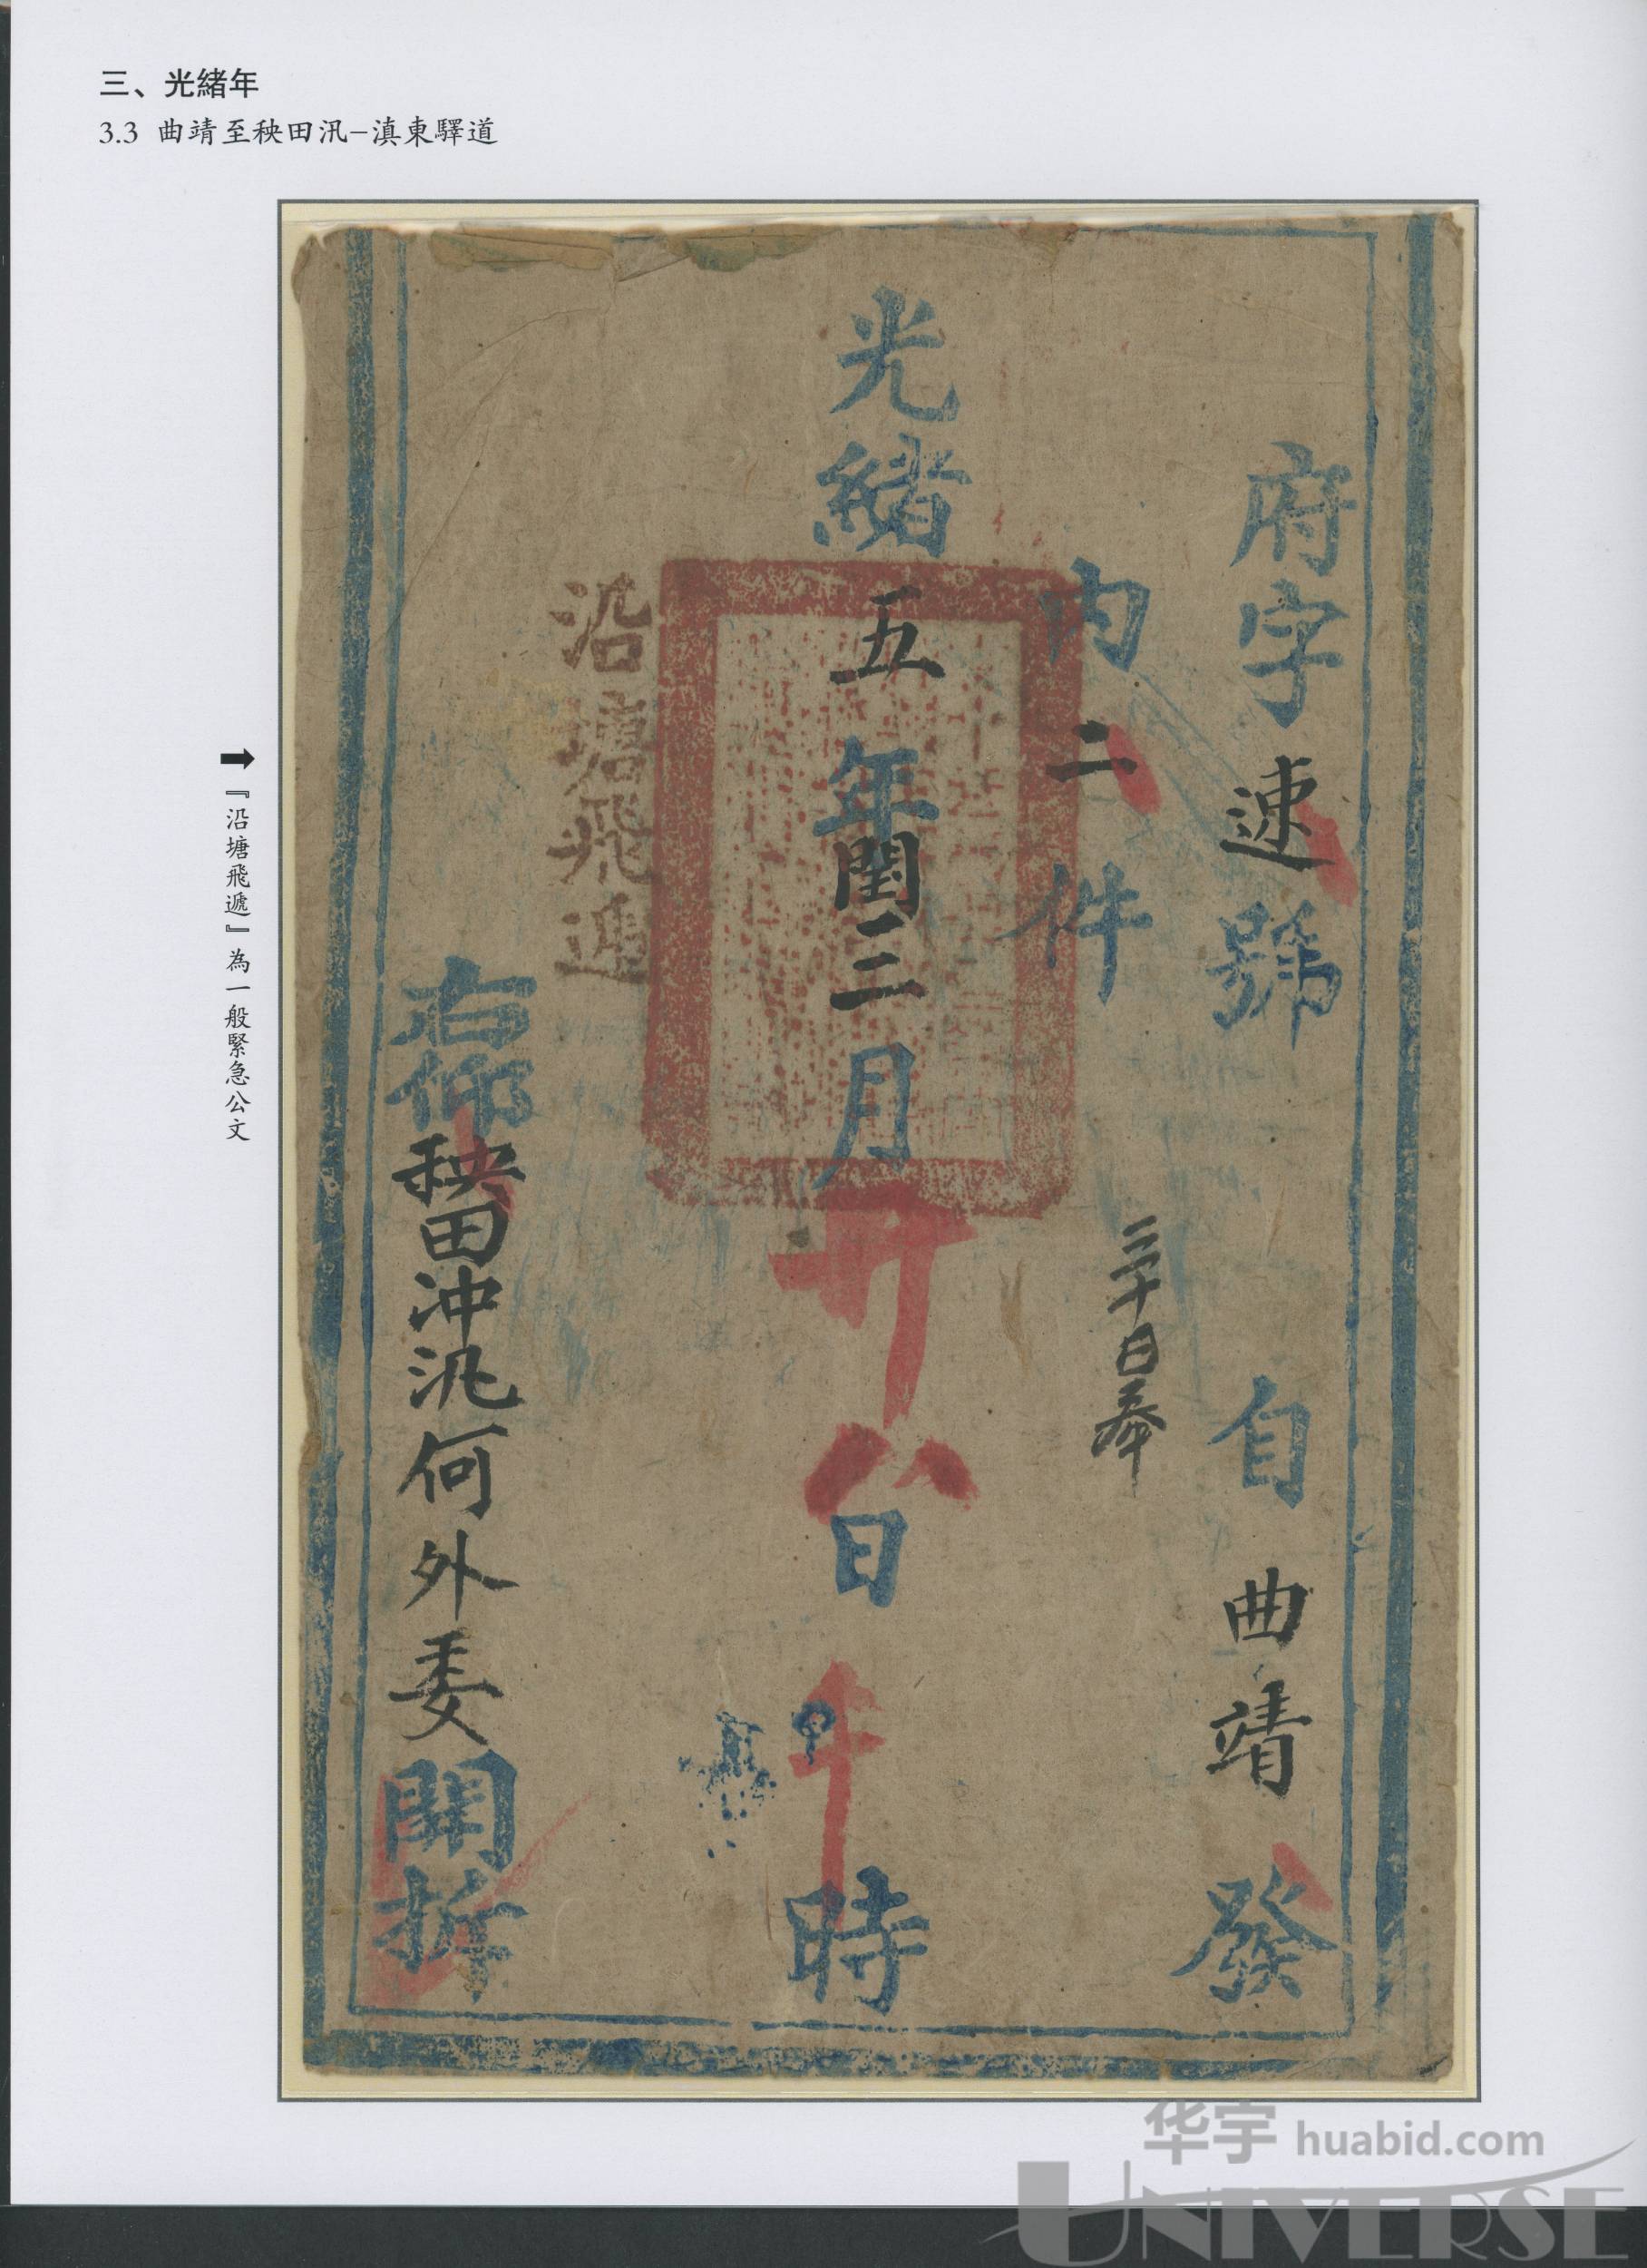 三、光緒年
3.3 曲靖至秧田汛–滇東驛道
府字速號 自曲靖發
內二件
三十日奉
光緒五年閏三月廿八日午時
沿塘飛遞
右仰秧田冲汛何外委開拆
➡『沿塘飛遞』為一般緊急公文
华宇 huabid.com
UNIVERSE